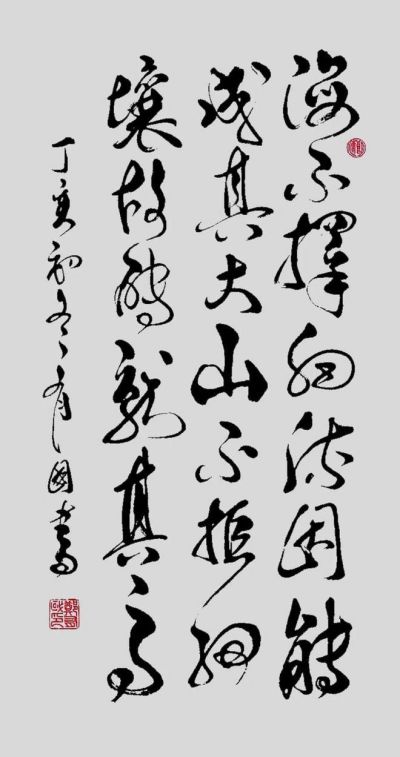 海不擇細流固能
成其大山不拒細
壤故能就其高
丁亥初冬有國書